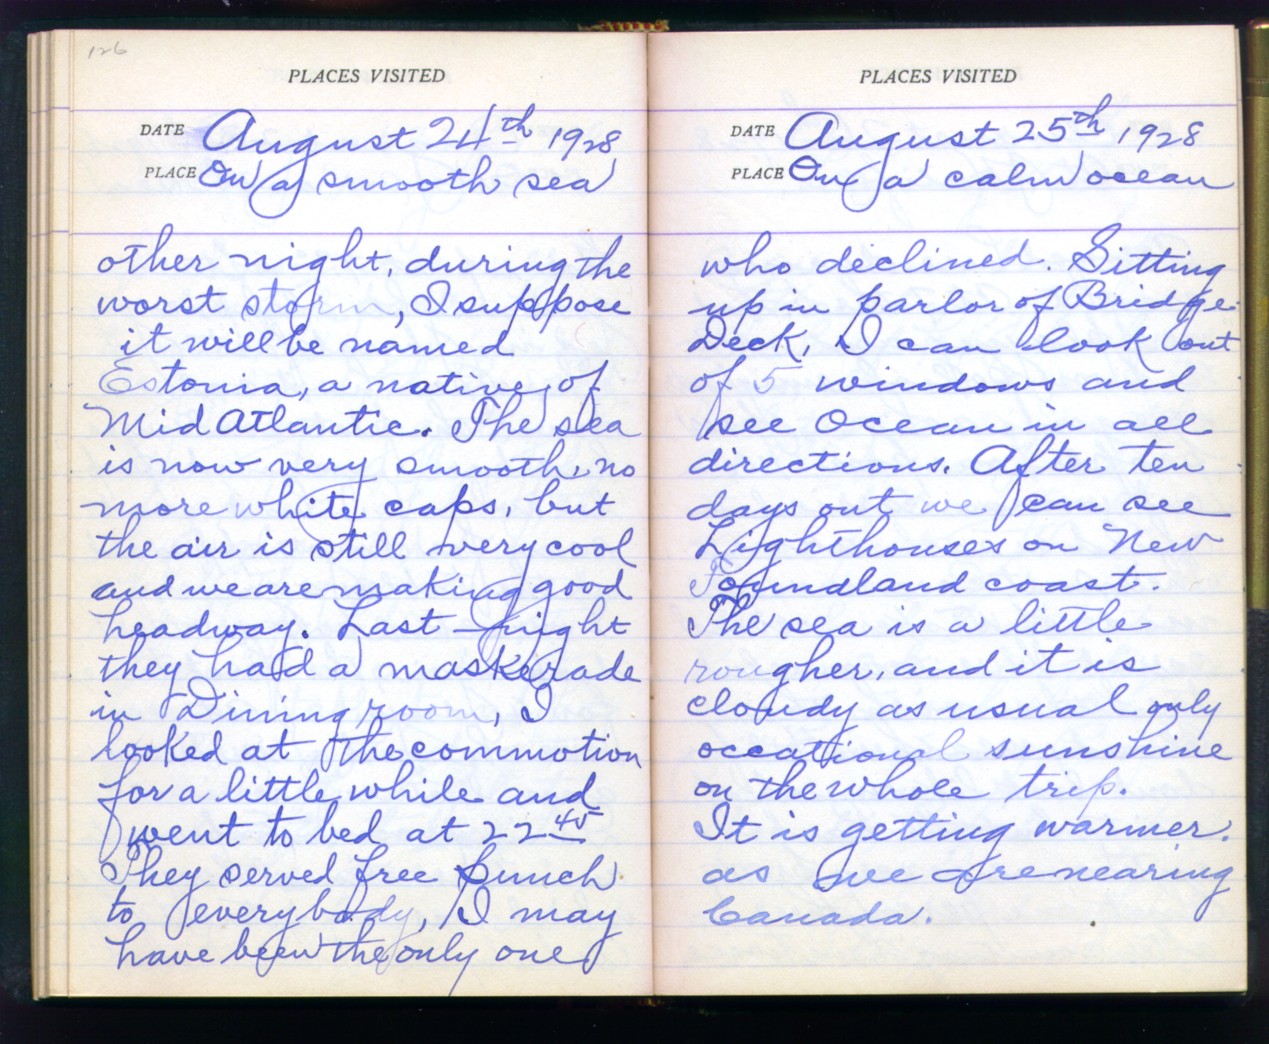 126
PLACES VISITED
DATE August 24th 1928
PLACE On a smooth sea
other night, during the
worst storm, I suppose
it will be named
Estonia, a native of
Mid Atlantic. The sea
is now very smooth, no
more white caps, but
the air is still very cool
and we are making good
headway. Last night
they had a maskerade
in Dining room, I
looked at the commotion
for a little while and
went to bed at 22 45
They served free punch
to everybody, I may
have been the only one
PLACES VISITED
DATE August 25th 1928
PLACE On a calm ocean
who declined. Sitting
up in parlor of Bridge
Deck, I can look out
of 5 windows and
see Ocean in all
directions. After ten
days out we can see
Lighthouses on New
Foundland coast.
The sea is a little
rougher, and it is
cloudy as usual only
occational sunshine
on the whole trip.
It is getting warmer.
as we are nearing
Canada.